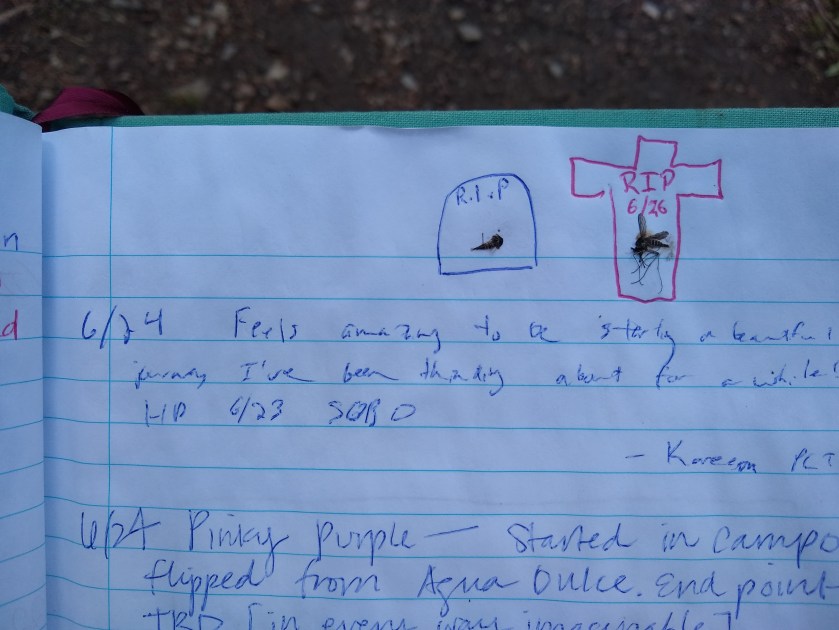 n
d
R.I.P
RIP
6/26
6/24 Feels amazing to be starting a beautiful
journey I've been thinking about for a while!
HP 6/23 SOBO
- Kareem PCT
6/24 Pinky Purple — Started in Campo
flipped from Agua Dulce. End point
TBD [in every way imaginable]